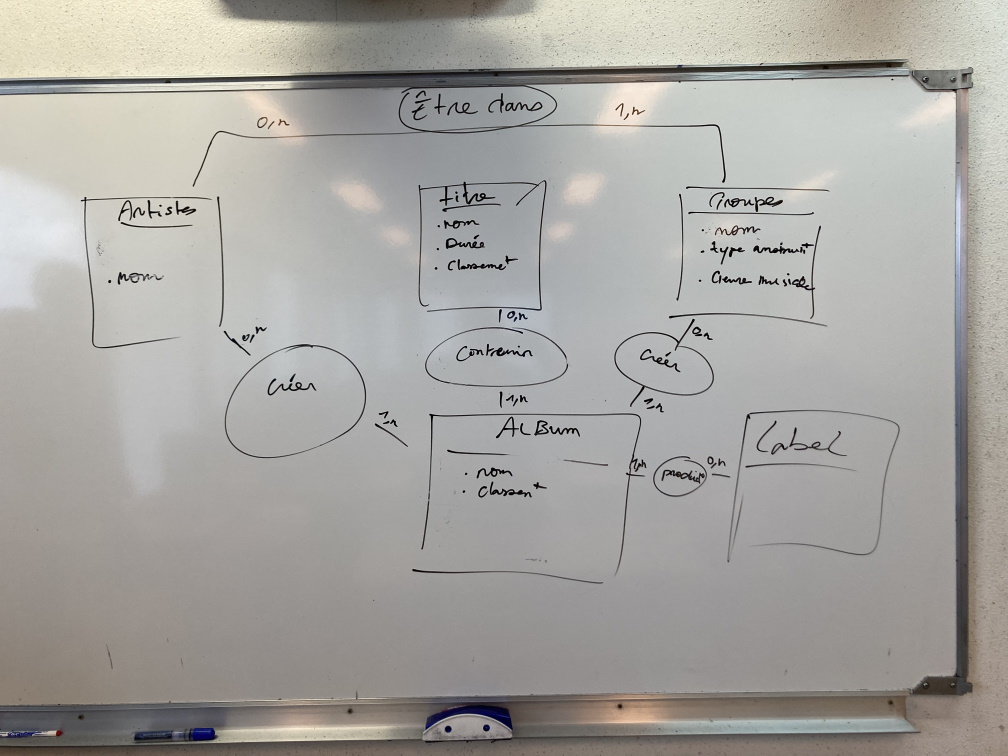 Être dans
0,n
1,n
Artistes
. nom
titre
. nom
. Durée
. Classemet
Groupes
. nom
. type
. Genre musical
0,n
créer
1,n
0,n
Contenir
1,n
0,n
Créer
1,n
ALBUM
. nom
. classent
1,n
produit
0,n
Label